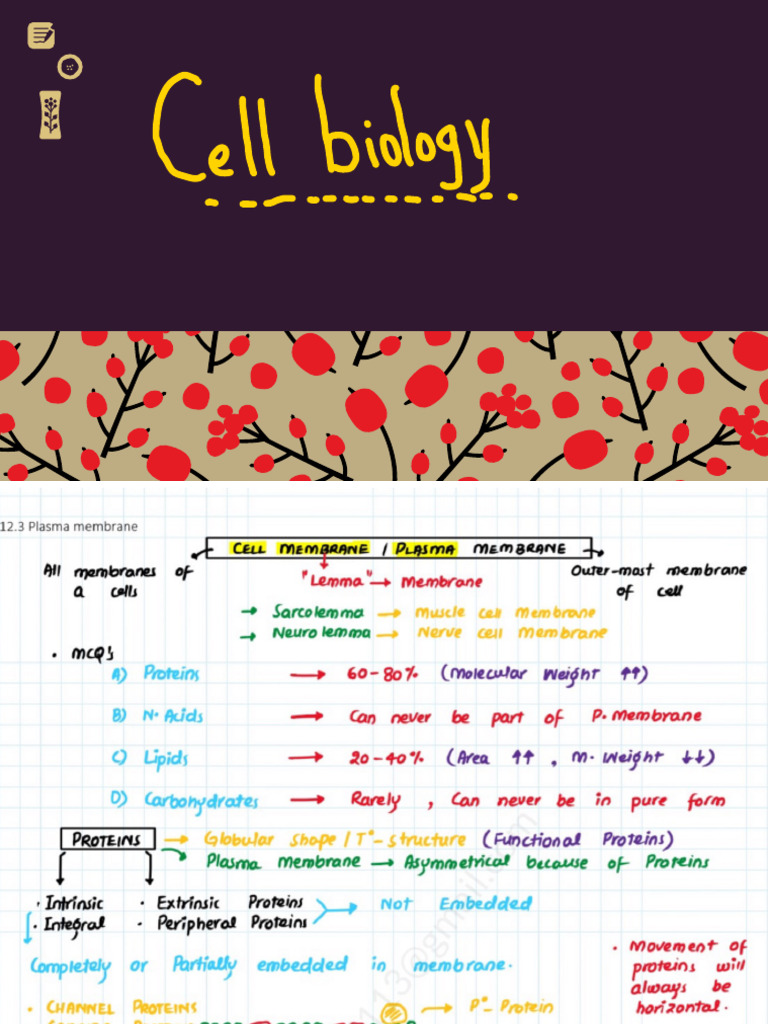 Cell biology
12.3 Plasma membrane
CELL MEMBRANE / PLASMA MEMBRANE
All membranes of a cells
"Lemma" → Membrane
Outer-most membrane of cell
→ Sarcolemma → Muscle cell Membrane
→ Neurolemma → Nerve cell Membrane
• MCQ's
A) Proteins → 60-80% (Molecular Weight ↑↑)
B) N. Acids → Can never be part of P. Membrane
C) Lipids → 20-40% (Area ↑↑, M. Weight ↓↓)
D) Carbohydrates → Rarely, Can never be in pure form
PROTEINS → Globular shape / T°-structure (Functional Proteins)
Plasma membrane → Asymmetrical because of Proteins
• Intrinsic • Extrinsic Proteins
• Integral • Peripheral Proteins → Not Embedded
Completely or Partially embedded in membrane.
• Movement of
proteins will
always be
horizontal.
• CHANNEL PROTEINS → P°-Protein